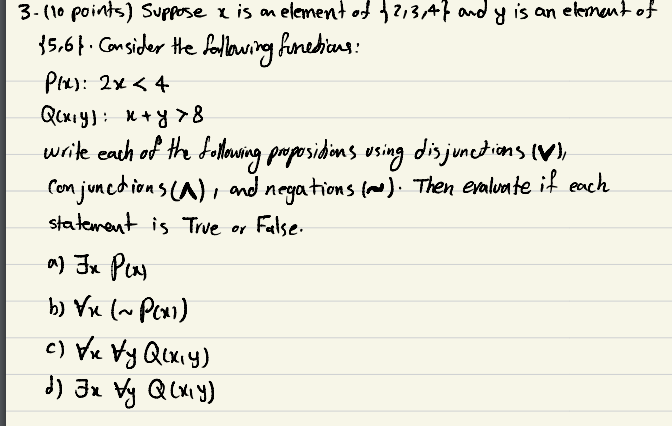 3-(10 points) Suppose x is an element of {2,3,4} and y is an element of
{5,6}. Consider the following functions:
P(x): 2x < 4
Q(x,y): x+y >8
write each of the following propositions using disjunctions (∨),
conjunctions (∧), and negations (~). Then evaluate if each
statement is True or False.
a) ∃x P(x)
b) ∀x (~P(x))
c) ∀x ∀y Q(x,y)
d) ∃x ∀y Q(x,y)